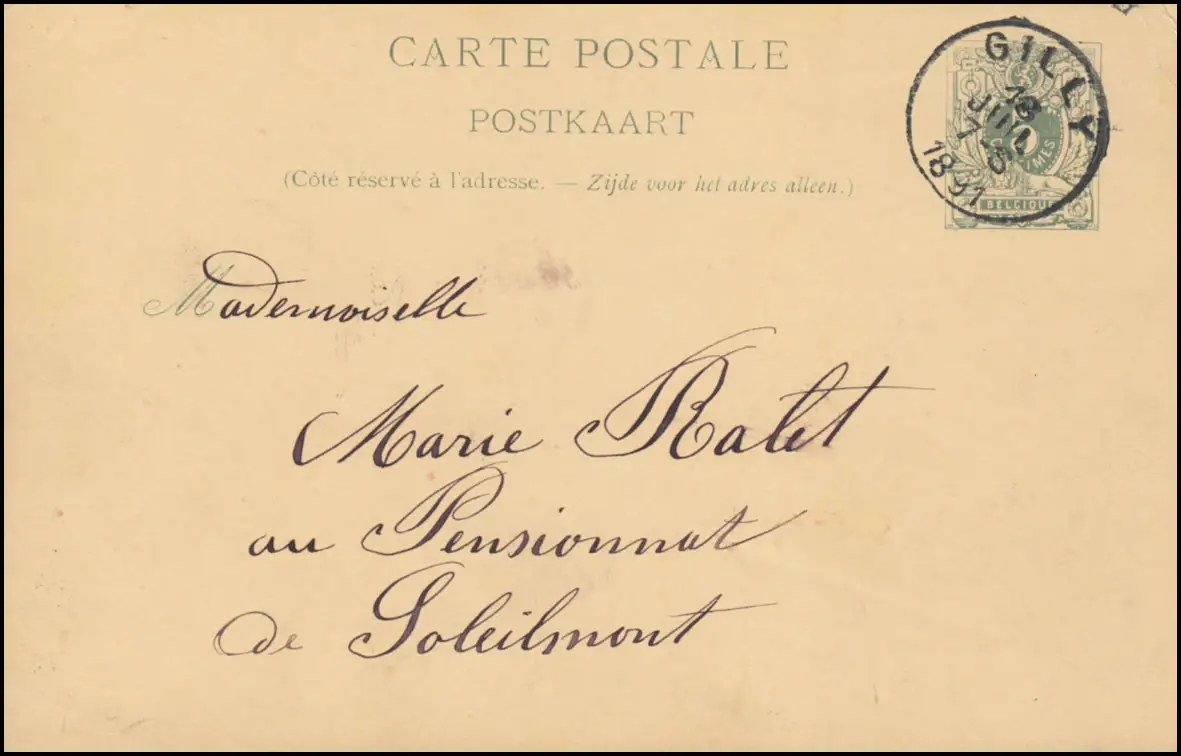 CARTE POSTALE
POSTKAART
(Côté réservé à l'adresse. — Zijde voor het adres alleen.)
GILLY
1891
BELGIQUE
Mademoiselle
Marie Ralet
au Pensionnat
de Soleilmont